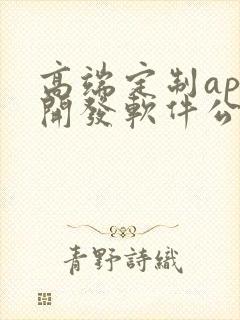 高端定制ap
開發軟件公
青野詩織